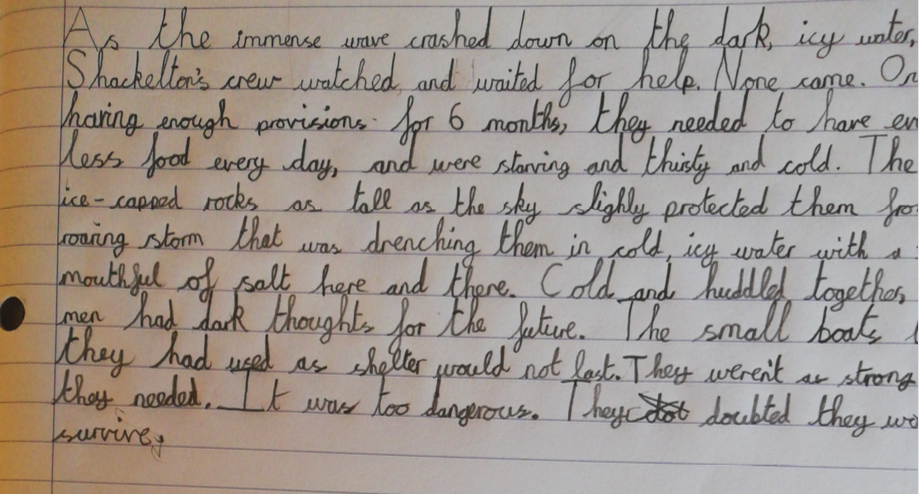 As the immense wave crashed down on the dark, icy water,
Shackelton's crew watched and waited for help. None came. On
having enough provisions for 6 months, they needed to have ev
less food every day, and were starving and thisty and cold. The
ice-capped rocks as tall as the sky slighly protected them fro
roaring storm that was drenching them in cold, icy water with a
mouthful of salt here and there. Cold and huddled together,
men had dark thoughts for the future. The small boats
they had used as shelter would not last. They weren't as strong
they needed. It was too dangerous. They doubted they wo
survive,